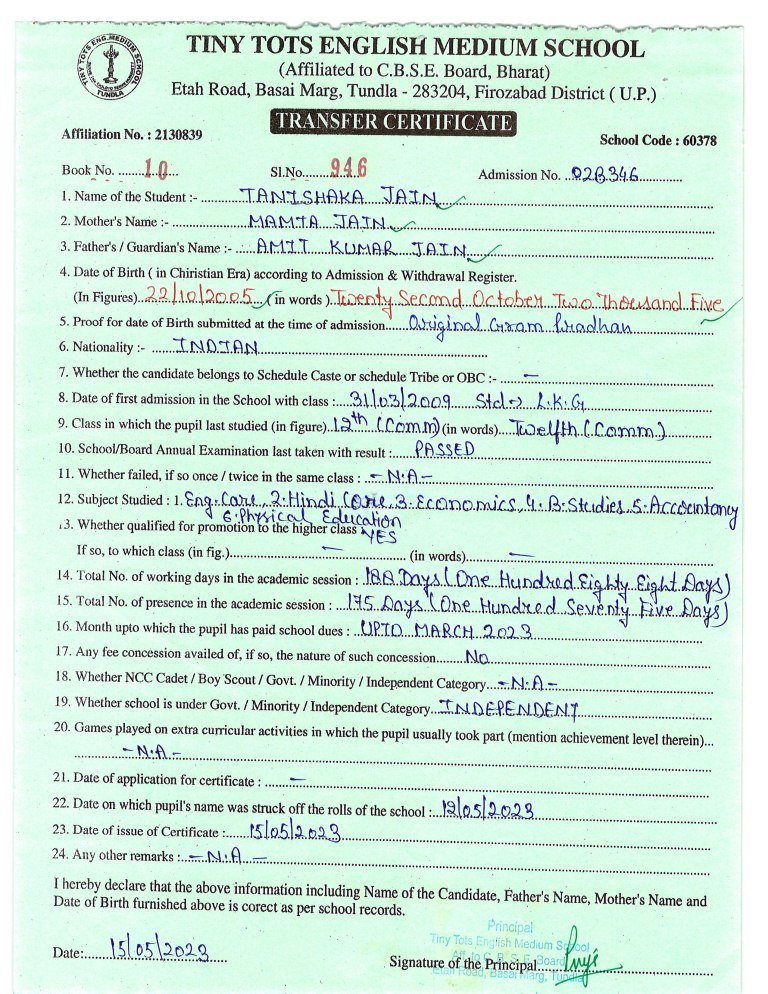 TINY TOTS ENG. MEDIUM SCHOOL
TUNDLA
TINY TOTS ENGLISH MEDIUM SCHOOL
(Affiliated to C.B.S.E. Board, Bharat)
Etah Road, Basai Marg, Tundla - 283204, Firozabad District ( U.P.)
TRANSFER CERTIFICATE
Affiliation No. : 2130839
School Code : 60378
Book No. ........10.... Sl.No........946 Admission No. ..02B346.............
1. Name of the Student :- ..........TANISHAKA JAIN
2. Mother's Name :- ..................MAMTA JAIN
3. Father's / Guardian's Name :- .....AMIT KUMAR JAIN
4. Date of Birth ( in Chiristian Era) according to Admission & Withdrawal Register.
(In Figures)..22/10/2005..(in words )..Twenty Second October Two Thousand Five
5. Proof for date of Birth submitted at the time of admission.....Original Gram Pradhan
6. Nationality :- .....INDIAN
7. Whether the candidate belongs to Schedule Caste or schedule Tribe or OBC :- .....—
8. Date of first admission in the School with class :....31/03/2009 Std -> L.K.G
9. Class in which the pupil last studied (in figure)..12th (Comm)(in words)...Twelfth (Comm.)
10. School/Board Annual Examination last taken with result :......PASSED
11. Whether failed, if so once / twice in the same class : ..- N.A -
12. Subject Studied : 1. Eng. Core, 2. Hindi Core, 3. Economics, 4. B. Studies, 5. Accountancy
6. Physical Education
.3. Whether qualified for promotion to the higher class YES
If so, to which class (in fig.)..........—.......... (in words)..........—..........
14. Total No. of working days in the academic session : .188 Days (One Hundred Eighty Eight Days)
15. Total No. of presence in the academic session : ...175 Days (One Hundred Seventy Five Days)
16. Month upto which the pupil has paid school dues : ..UPTO MARCH 2023
17. Any fee concession availed of, if so, the nature of such concession.......No
18. Whether NCC Cadet / Boy Scout / Govt. / Minority / Independent Category...- N.A -
19. Whether school is under Govt. / Minority / Independent Category..INDEPENDENT
20. Games played on extra curricular activities in which the pupil usually took part (mention achievement level therein)...
- N.A -
21. Date of application for certificate : ......—
22. Date on which pupil's name was struck off the rolls of the school :..12/05/2023
23. Date of issue of Certificate :......15/05/2023
24. Any other remarks :..- N.A -
I hereby declare that the above information including Name of the Candidate, Father's Name, Mother's Name and
Date of Birth furnished above is corect as per school records.
Principal
Tiny Tots English Medium School
Aff. to C. B. S. E. Board
Etah Road, Basai Marg, Tundla
Date:......15/05/2023....
Signature of the Principal....